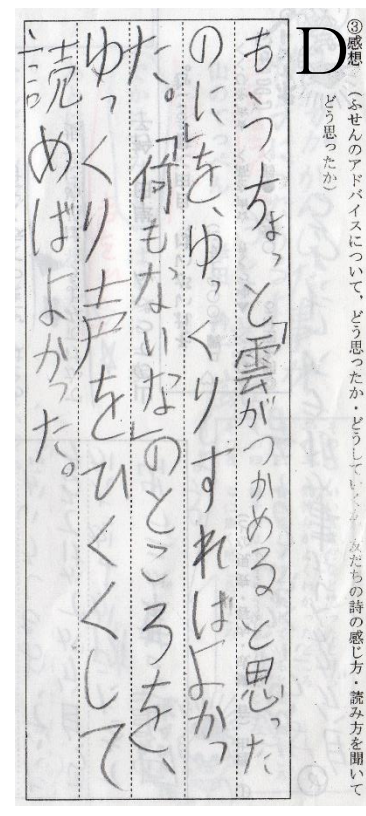 D
③感想 (ふせんのアドバイスについて、どう思ったか・どうして 友だちの詩の感じ方・読み方を聞いて
どう思ったか)
もうちょっと「雲がつかめると思った
のに」を、ゆっくりすればよかっ
た。「何もないな」のところを、
ゆっくり声をひくくして
読めばよかった。